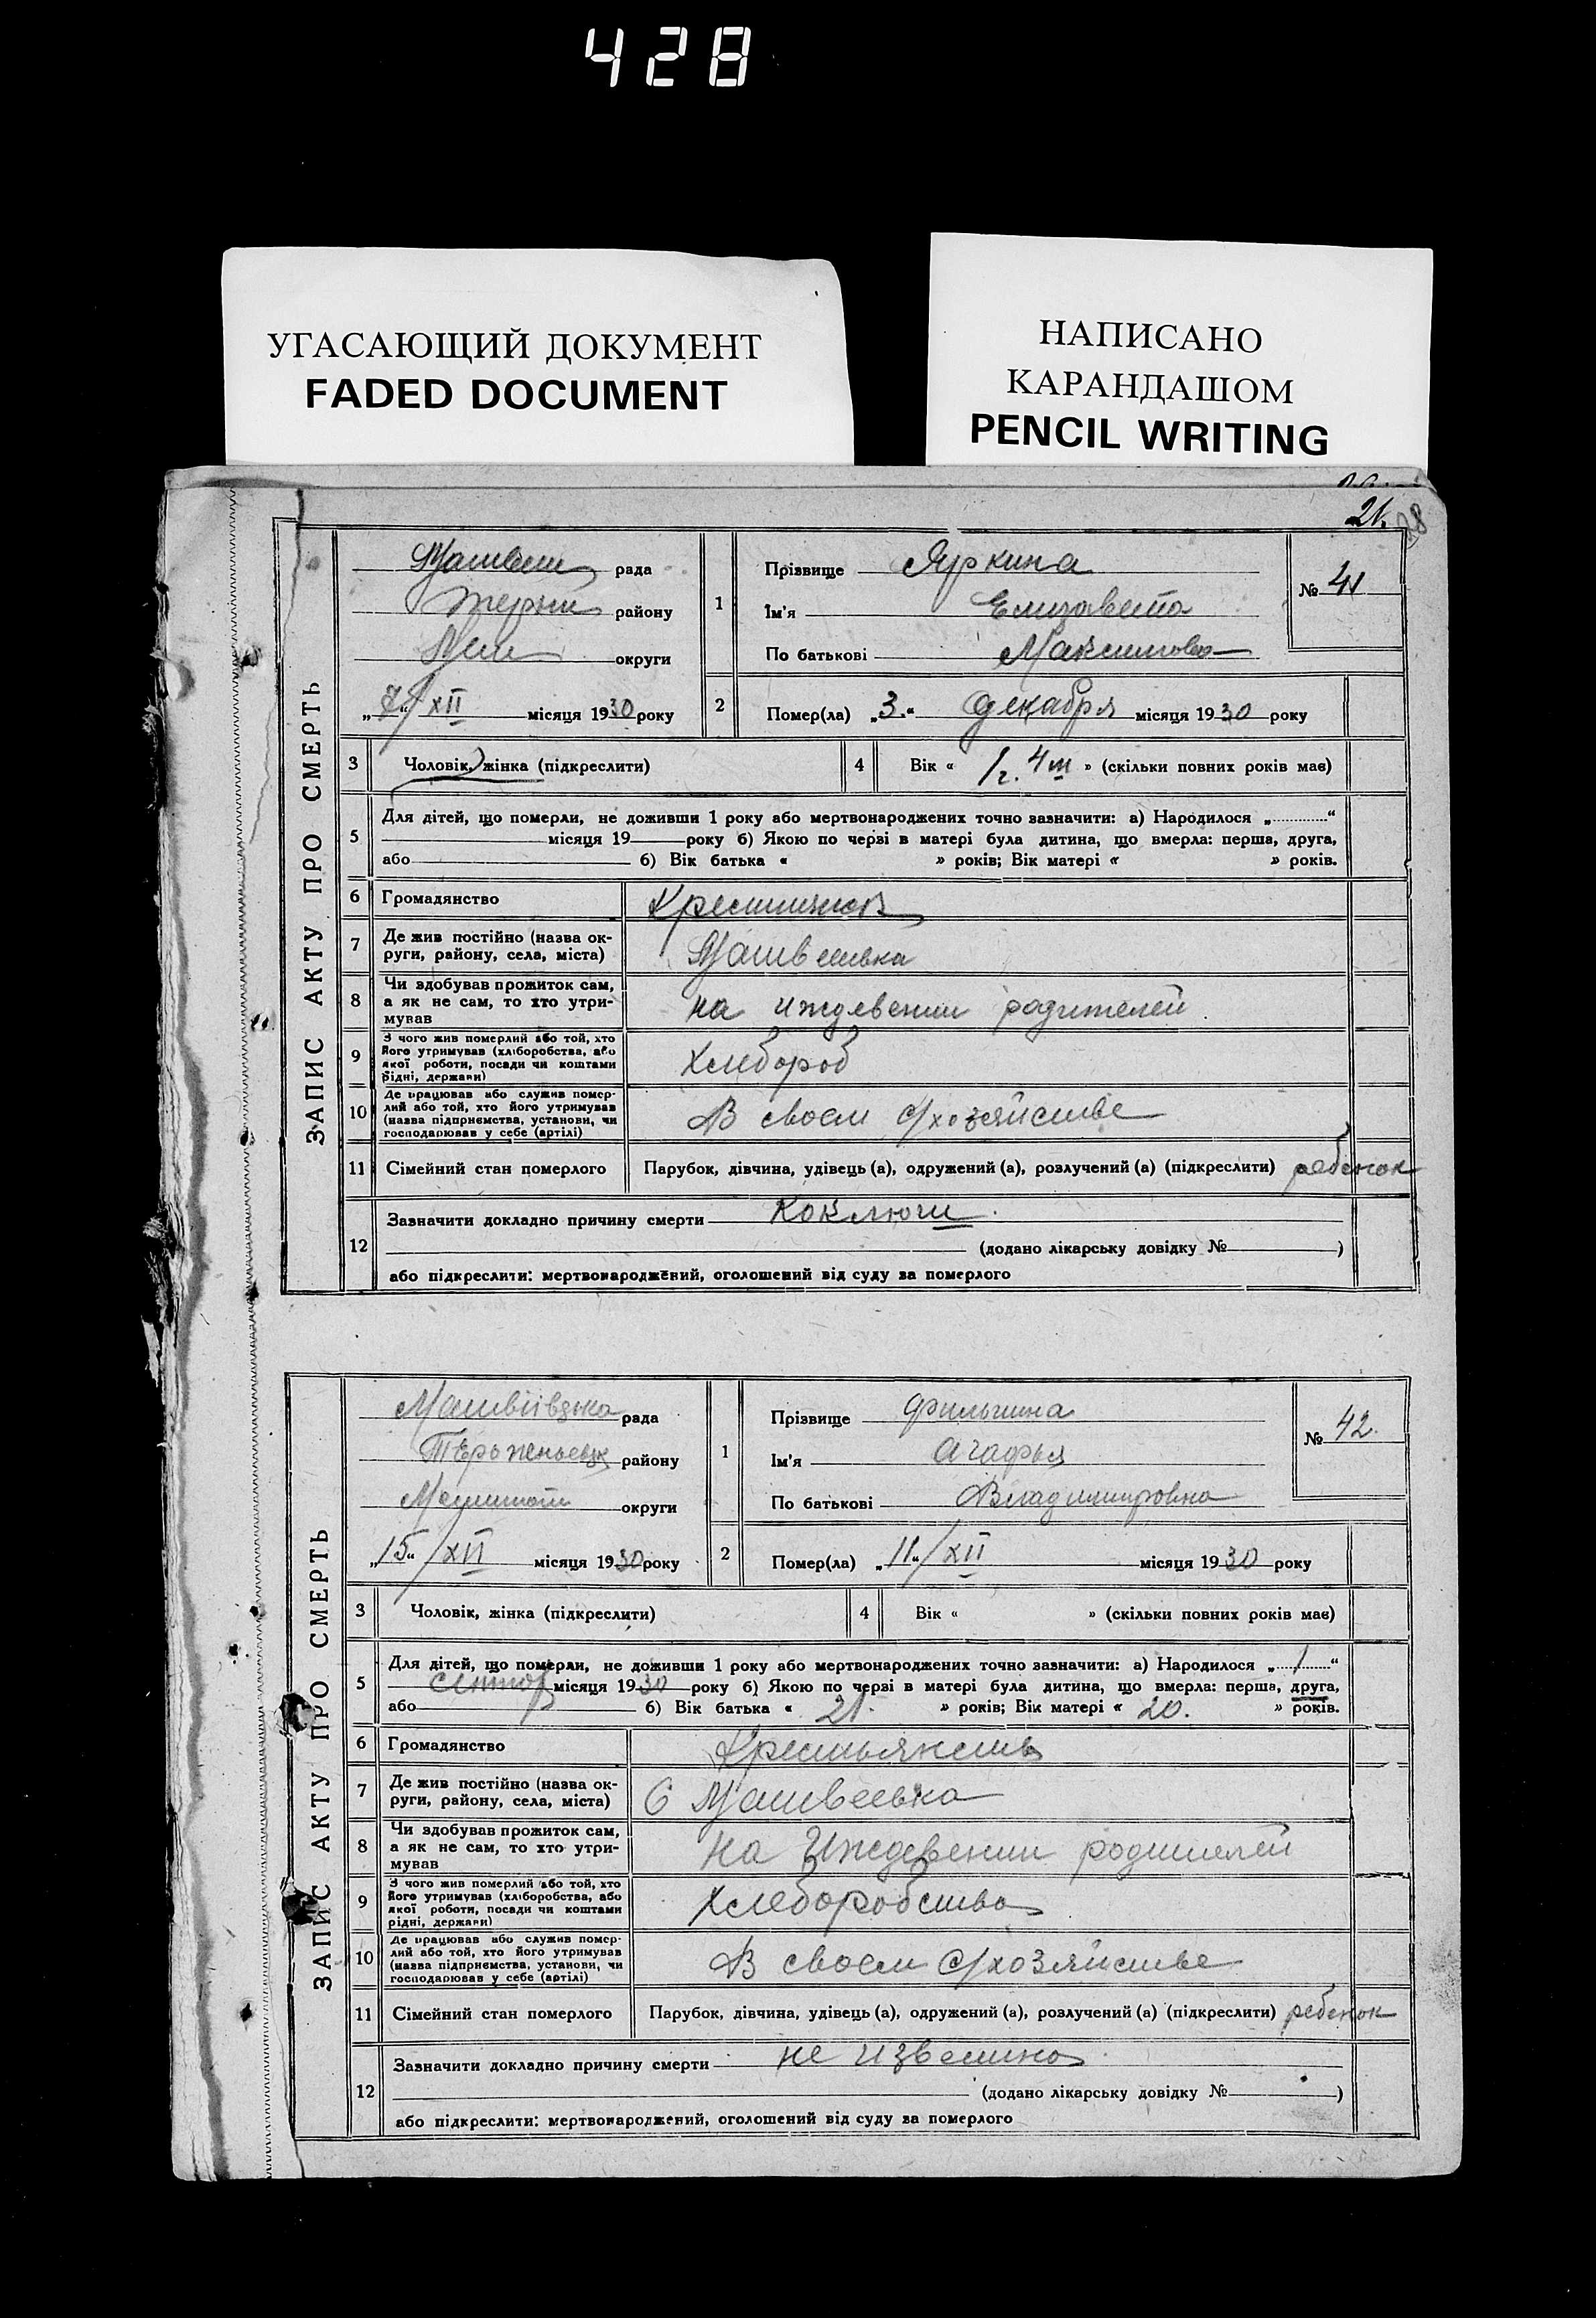 428
УГАСАЮЩИЙ ДОКУМЕНТ
FADED DOCUMENT
НАПИСАНО
КАРАНДАШОМ
PENCIL WRITING
21.
ЗАПИС АКТУ ПРО СМЕРТЬ
рада
району
округи
„7“/XII місяця 1930 року
1
Прізвище Яркина
Ім'я Елизавета
По батькові Максимовна
№ 41
2
Помер(ла) „3.“ декабря місяця 1930 року
3
Чоловік, жінка (підкреслити)
4
Вік « 1 г. 4 м » (скільки повних років має)
5
Для дітей, що померли, не доживши 1 року або мертвонароджених точно зазначити: а) Народилося „............“
місяця 19 року б) Якою по черзі в матері була дитина, що вмерла: перша, друга,
або б) Вік батька « » років; Вік матері « » років.
6
Громадянство
7
Де жив постійно (назва ок-
руги, району, села, міста)
Матвеевка
8
Чи здобував прожиток сам,
а як не сам, то хто утри-
мував
на иждевении родителей
9
З чого жив померлий або той, хто
його утримував (хліборобства, або
якої роботи, посади чи коштами
рідні, держави)
Хлебороб
10
Де працював або служив помер-
лий або той, хто його утримував
(назва підприємства, установи, чи
господарював у себе (артілі)
В своем с/хозяйстве
11
Сімейний стан померлого
Парубок, дівчина, удівець (а), одружений (а), розлучений (а) (підкреслити) ребенок
12
Зазначити докладно причину смерти Коклюш
(додано лікарську довідку № )
або підкреслити: мертвонароджений, оголошений від суду за померлого
ЗАПИС АКТУ ПРО СМЕРТЬ
Матвіївська рада
району
округи
„15“/XII місяця 1930 року
1
Прізвище Фильшина
Ім'я Агафья
По батькові Владимировна
№ 42.
2
Помер(ла) „11“/XII місяця 1930 року
3
Чоловік, жінка (підкреслити)
4
Вік « » (скільки повних років має)
5
Для дітей, що померли, не доживши 1 року або мертвонароджених точно зазначити: а) Народилося „...1...“
місяця 1930 року б) Якою по черзі в матері була дитина, що вмерла: перша, друга,
або б) Вік батька « 21. » років; Вік матері « 20. » років.
6
Громадянство
7
Де жив постійно (назва ок-
руги, району, села, міста)
С Матвеевка
8
Чи здобував прожиток сам,
а як не сам, то хто утри-
мував
На Иждевении родителей
9
З чого жив померлий або той, хто
його утримував (хліборобства, або
якої роботи, посади чи коштами
рідні, держави)
Хлеборобство
10
Де працював або служив помер-
лий або той, хто його утримував
(назва підприємства, установи, чи
господарював у себе (артілі)
В своем с/хозяйстве
11
Сімейний стан померлого
Парубок, дівчина, удівець (а), одружений (а), розлучений (а) (підкреслити) ребенок
12
Зазначити докладно причину смерти не известно
(додано лікарську довідку № )
або підкреслити: мертвонароджений, оголошений від суду за померлого